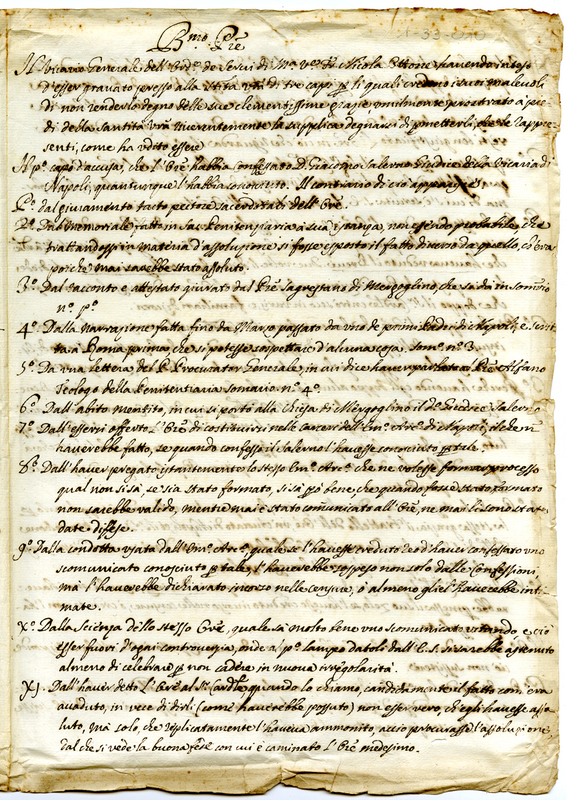 Bmo. Pre
Il Vicario Generale dell'Ord.e de Servi di Ma. Vre Fr. Nicola Ettore havendo inteso
d'esser gravato presso alla Stità Vrà di tre capi p li quali credono i suoi malevoli
di non renderlo degno delle sue clementissime grazie, umilmente prostrato a pie-
di della Santità Vrà riverentemente la supplica degnarsi di pmetterli, che le rappre-
senti, come ha udito essere
Il p.o capo d'accusa, che l'Ore habbia confessato D. Giacomo Salerno Giudice della Vicaria di
Napoli, quantunque l'habbia conosciuto. Il contrario di ciò apparisce
P.o dal giuramento tacto pectore sacerdotali dell'Ore.
2.o Dal Memoriale fatto in Sac. Penitenziaria à sua non essendo probabile, che
trattandosi in materia d'assoluzione si fosse esposto il fatto diverso da quello, ch'era
poiche mai sarebbe stato assoluto.
3.o Dal racconto e attestato giurato del Pre Sagrestano di Mergoglino, che si dà in somrio
n.o p.o
4.o Dalla narrazione fatta fino da Marzo passato da uno de primi di Napoli, e scrit-
ta à Roma prima, che si potesse sospettare d'alcuna cosa. Som.o n.o 3.
5.o Da una lettera del P. Procurator Generale, in cui dice haver parlato al Pre Alfaro
Teologo della Penitentiaria somario n.o 4.o
6.o Dall'abito mentito, in cui si portò alla Chiesa di Mergoglino il do. Giudice Salerno
7.o Dall'essersi offerto l'Ore di costituirsi nelle carceri dell'Emo. Arco. di Napoli, il che non
haverebbe fatto, se quando confessò il Salerno l'havesse conosciuto p tale.
8.o Dall'haver pregato istantemente lo stesso Emo. Arco. che ne volesse formar processo
qual non si sà, se sia stato formato, si sà pò bene, che quando fosse stato formato
non sarebbe valido, mentre mai è stato comunicato all'Ore, ne mai li sono state
date difese.
9.o Dalla condotta usata dall'Emo. Arco. quale se l'havesse creduto reo d'haver confessato uno
scomunicato conosciuto p tale, l'haverebbe sospeso non solo dalle confessioni
mà l'haverebbe dichiarato incorso nelle censure, ò almeno gliel'haverebbe inti-
mate.
X.o Dalla scienza dello stesso Ore, quale sà molto bene uno scomunicato vitando, e ciò
esser fuori d'ogni controversia, onde al p.o lampo datoli dall'E.S. si sarebbe astenuto
almeno di celebrare p non cadere in nuova irregolarità.
XI. Dall'haver detto l'Ore al Sr. Cardle quando lo chiamò, candidamente il fatto com'era
accaduto, in vece di dirli (come haverebbe possuto) non esser vero, ch'egli l'havesse asso-
luto, mà solo, che replicatamente l'haveva ammonito, acciò procurasse l'assoluzione
dal che si vede la buona fede con cui è caminato l'Ore medesimo.